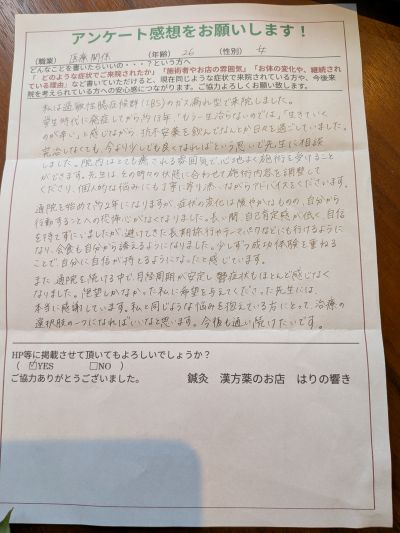 アンケート感想をお願いします！
(職業) 医療関係 (年齢) 26 (性別) 女
どんなことを書いたらいいの・・・？という方へ
「 どのような症状でご来院されたか」「施術者やお店の雰囲気」「お体の変化や、継続され
ている理由」など書いていただけると、現在同じような症状で来院されている方や、今後来
院を考えられている方への安心感に繋がります。ご協力よろしくお願い致します。
私は過敏性腸症候群(IBS)のガス漏れ型で来院しました。
学生時代に発症してから約10年「もう一生治らないのでは」「生きていく
のが辛い」と感じながら、抗不安薬を飲んでなんとか日々を過ごしていました。
完治しなくても、今より少しでも良くなればという思いで先生に相談
しました。院内はとても癒される雰囲気で、心地よく施術を受けることが
できます。先生はその時々の状態に合わせて施術内容を調整して
くださり、個人的な悩みにも丁寧に寄り添いながらアドバイスをくださいます。
通院を始めて約2年になりますが、症状の変化は緩やかなものの、自分から
行動することへの恐怖心がなくなりました。長い間、自己肯定感が低く、自信
を持てずにいましたが、避けてきた長期旅行やテーマパークなどにも行けるように
なり、会食も自分から誘えるようになりました。少しずつ成功体験を重ねる
ことで、自分に自信が持てるようになったと感じています。
また、通院を続ける中で、月経周期が安定し、鬱症状もほとんど感じなく
なりました。絶望しかなかった私に希望を与えてくださった先生には、
本当に感謝しています。私と同じような悩みを抱えている方にとって、治療の
選択肢の一つになればいいなと思います。今後も通い続けたいです。
HP等に掲載させて頂いてもよろしいでしょうか？
( ☑YES □NO )
ご協力ありがとうございました。 鍼灸 漢方薬のお店 はりの響き